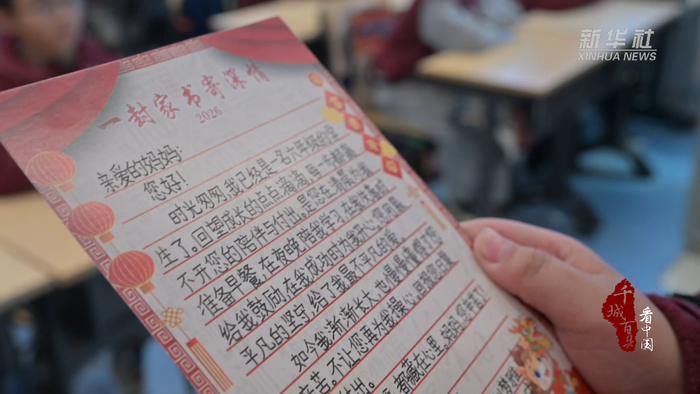 新华社
XINHUA NEWS
一封家书寄深情
2026
亲爱的妈妈:
您好!
时光匆匆,我已经是一名六年级的学
生了。回望成长的点点滴滴,每一步都离
不开您的陪伴与付出。是您在清晨为我
准备早餐,在夜晚陪我学习,在我失落时
给我鼓励,在我成功时为我开心。您用最
平凡的坚守,给了我最不平凡的爱。
如今我渐渐长大,也慢慢懂得了您的
辛苦。不让您再为我操心,
付出。 都藏在心里。妈妈,您辛苦了!
千城百县
看中国